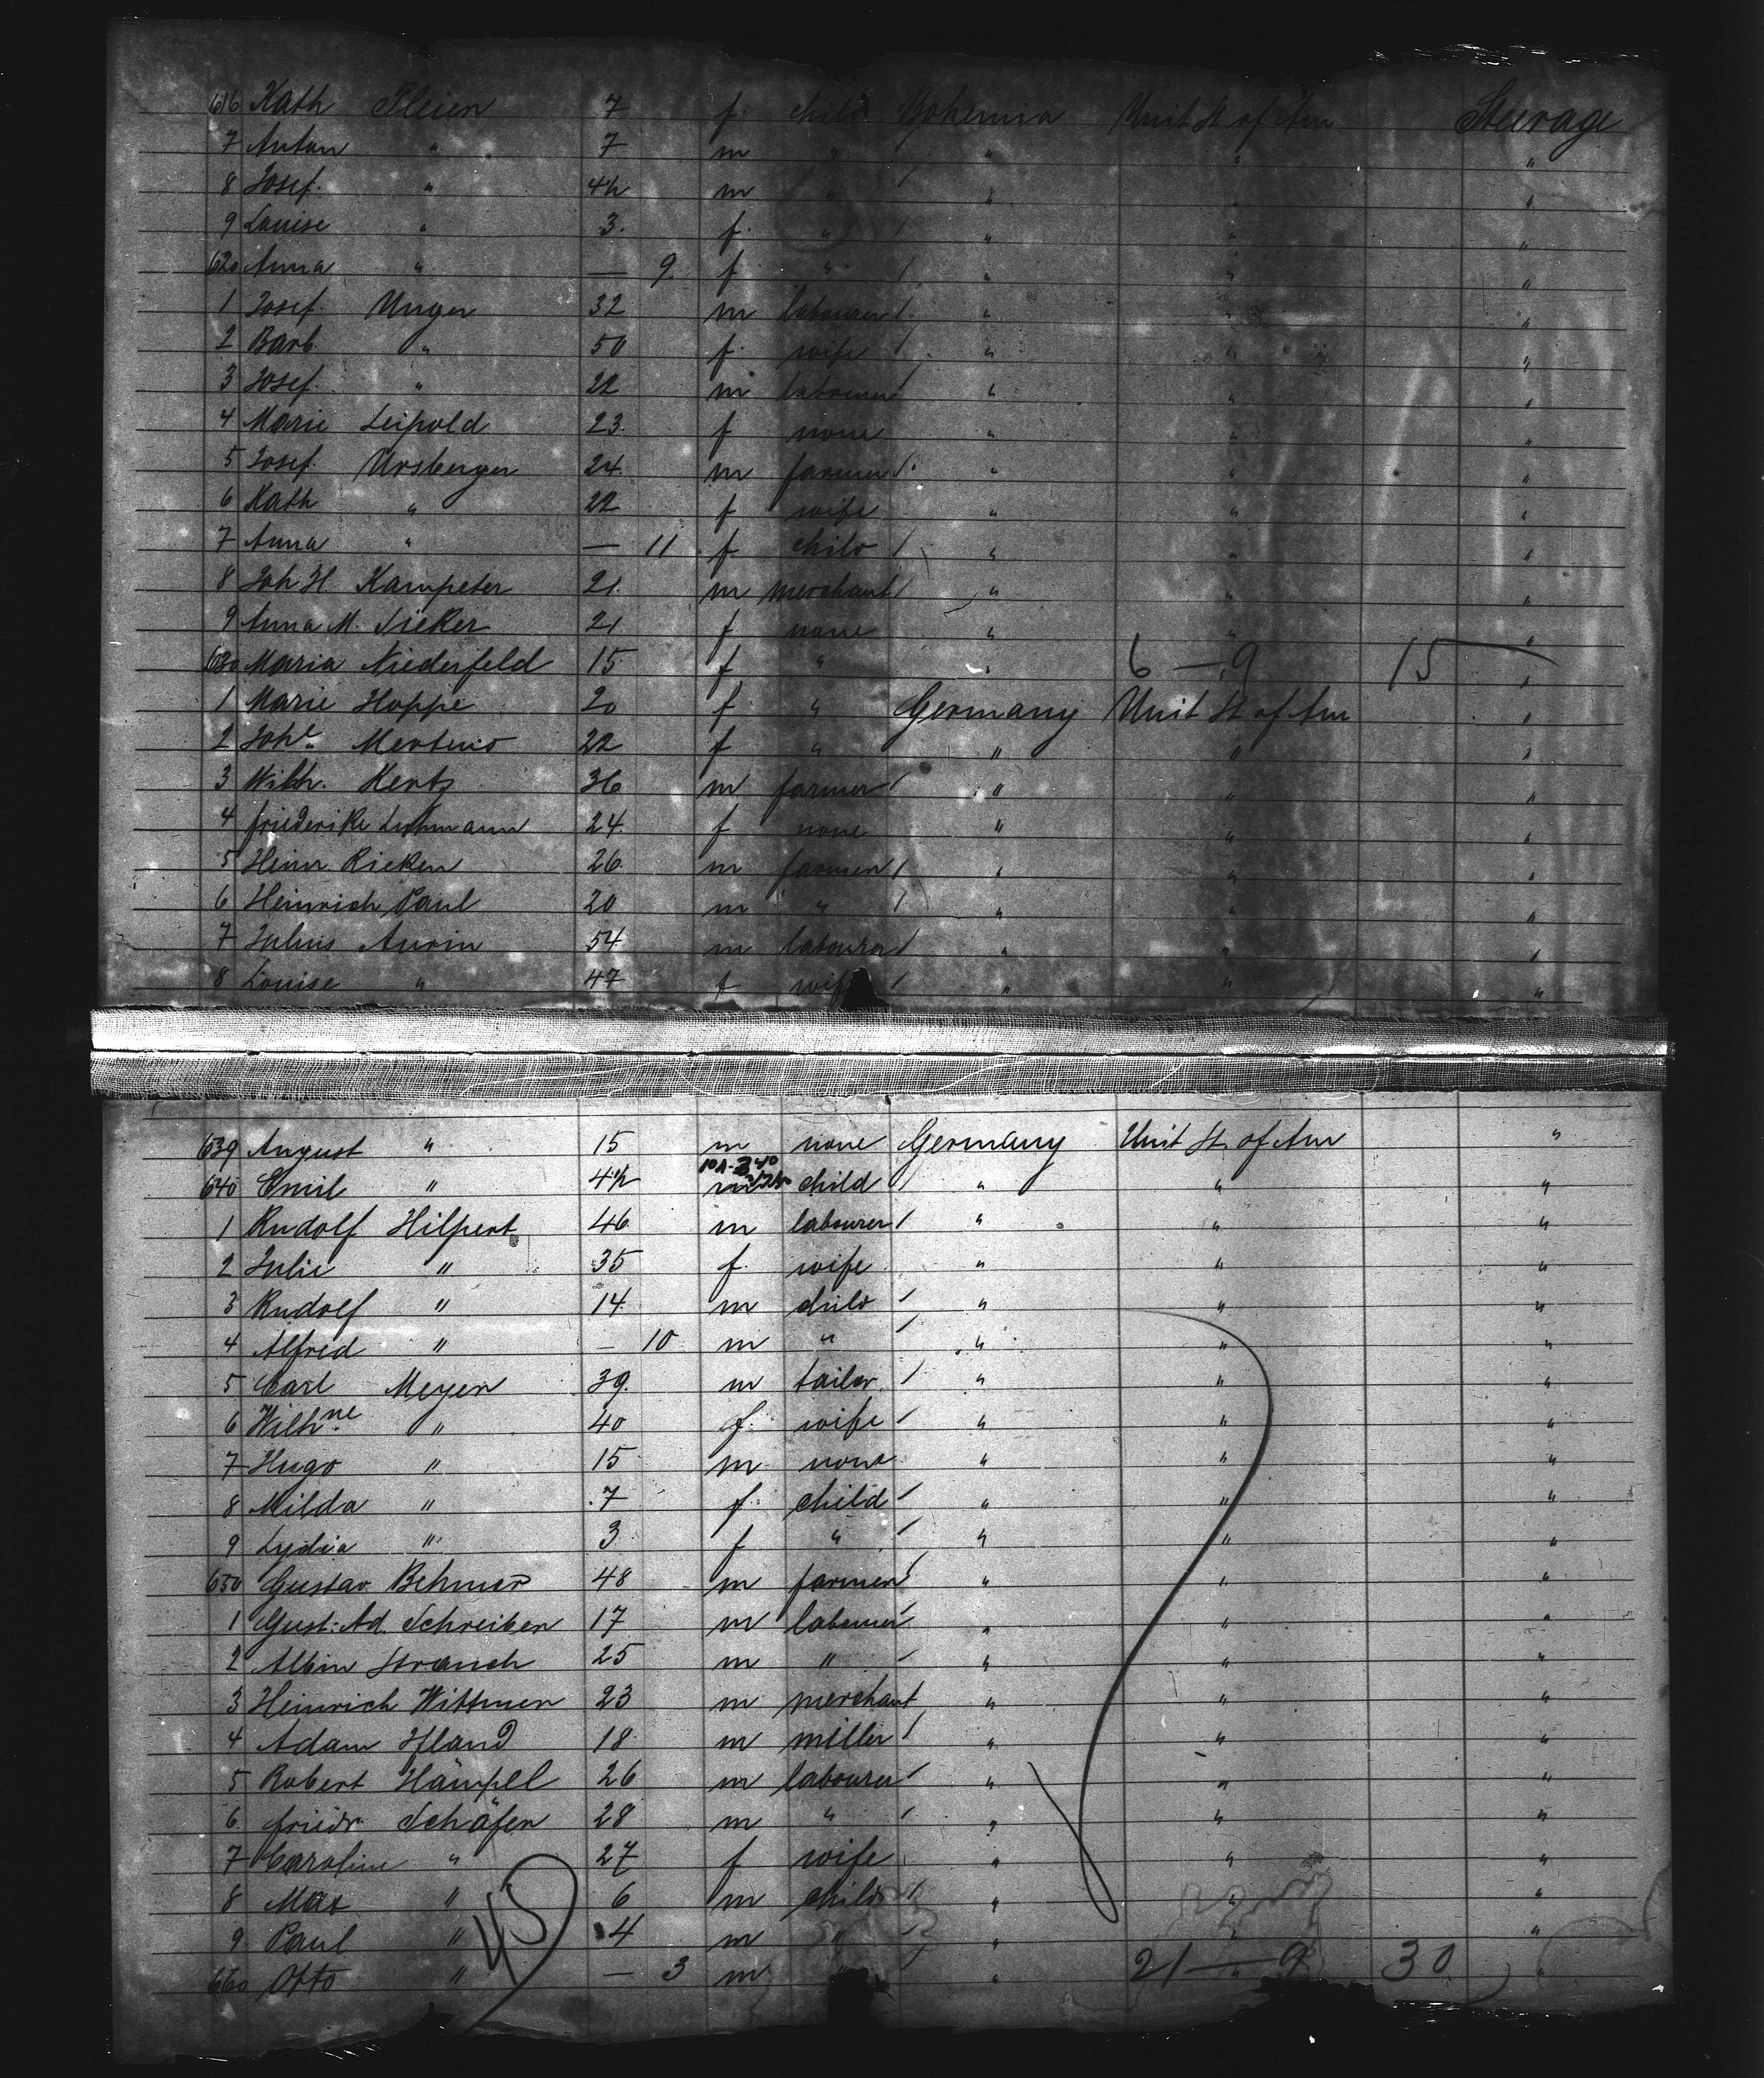 616 Kath Pleier 7 f. child Bohemia Unit St of Am Steerage
7 Anton " 7 m " " " "
8 Josef. " 4½ m " " " "
9 Louise " 3. f. " " " "
620 Anna " — 9. f " " " "
1 Josef. Unger 32 m labourer " " "
2 Barb. " 50 f. wife " " "
3 Josef. " 22 m labourer " " "
4 Marie Leipold 23. f none " " "
5 Josef. Ursberger 24. m farmer " " "
6 Kath " 22 f wife " " "
7 Anna " — 11 f child " " "
8 Joh H. Kampeter 21. m merchant " " "
9 Anna M. Sieker 21 f none " " "
630 Maria Niederfeld 15 f " " 6 — 9 15 "
1 Marie Hoppe 20 f " Germany Unit St of Am "
2 Johe Mertens 22 f " " " "
3 Wilh. Hertz 36 m farmer " " "
4 Friederike Luhmann 24. f none " " "
5 Heinr. Rieken 26. m farmer " " "
6 Heinrich Paul 20 m " " " "
7 Julius Aurin 54 m labourer " " "
8 Louise " 47 f wife " " "
639 August " 15 m none Germany Unit St. of Am "
640 Emil " 4½ m child " " "
1 Rudolf Hilpert 46 m labourer " " "
2 Julie " 35 f. wife " " "
3 Rudolf " 14. m child " " "
4 Alfred " — 10 m " " " "
5 Carl Meyer 39. m tailor. " " "
6 Wilhne " 40 f. wife " " "
7 Hugo " 15 m none " " "
8 Milda " 7 f. child " " "
9 Lydia " 3 f " " " "
650 Gustav Behmer 48 m farmer " " "
1 Gust. Ad. Schreiber 17 m labourer " " "
2 Albin Strauch 25 m " " " "
3 Heinrich Wittmer 23 m merchant " " "
4 Adam Ifland 18 m miller " " "
5 Robert Hämpel 26 m labourer " " "
6. Friedr. Schäfer 28 m " " " "
7 Caroline " 27 f wife " " "
8 Max " 6 m child " " "
9 Paul " 4 m " " " "
660 Otto " — 3 m " " 21 — 9 30 "
45